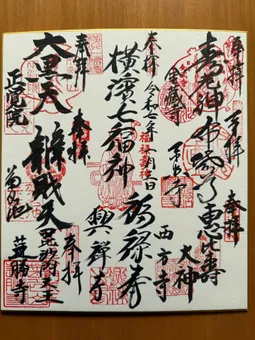 奉拝
寿老神
金蔵寺
奉拝
布袋尊
東照寺
奉拝
恵比寿
大神
奉拝
令和七年
福禄寿
西方寺
横濱七福神
興禅寺
奉拝
大黒天
正覚院
奉拝
辨財天
菊名池
奉拝
毘沙門天王
蓮勝寺